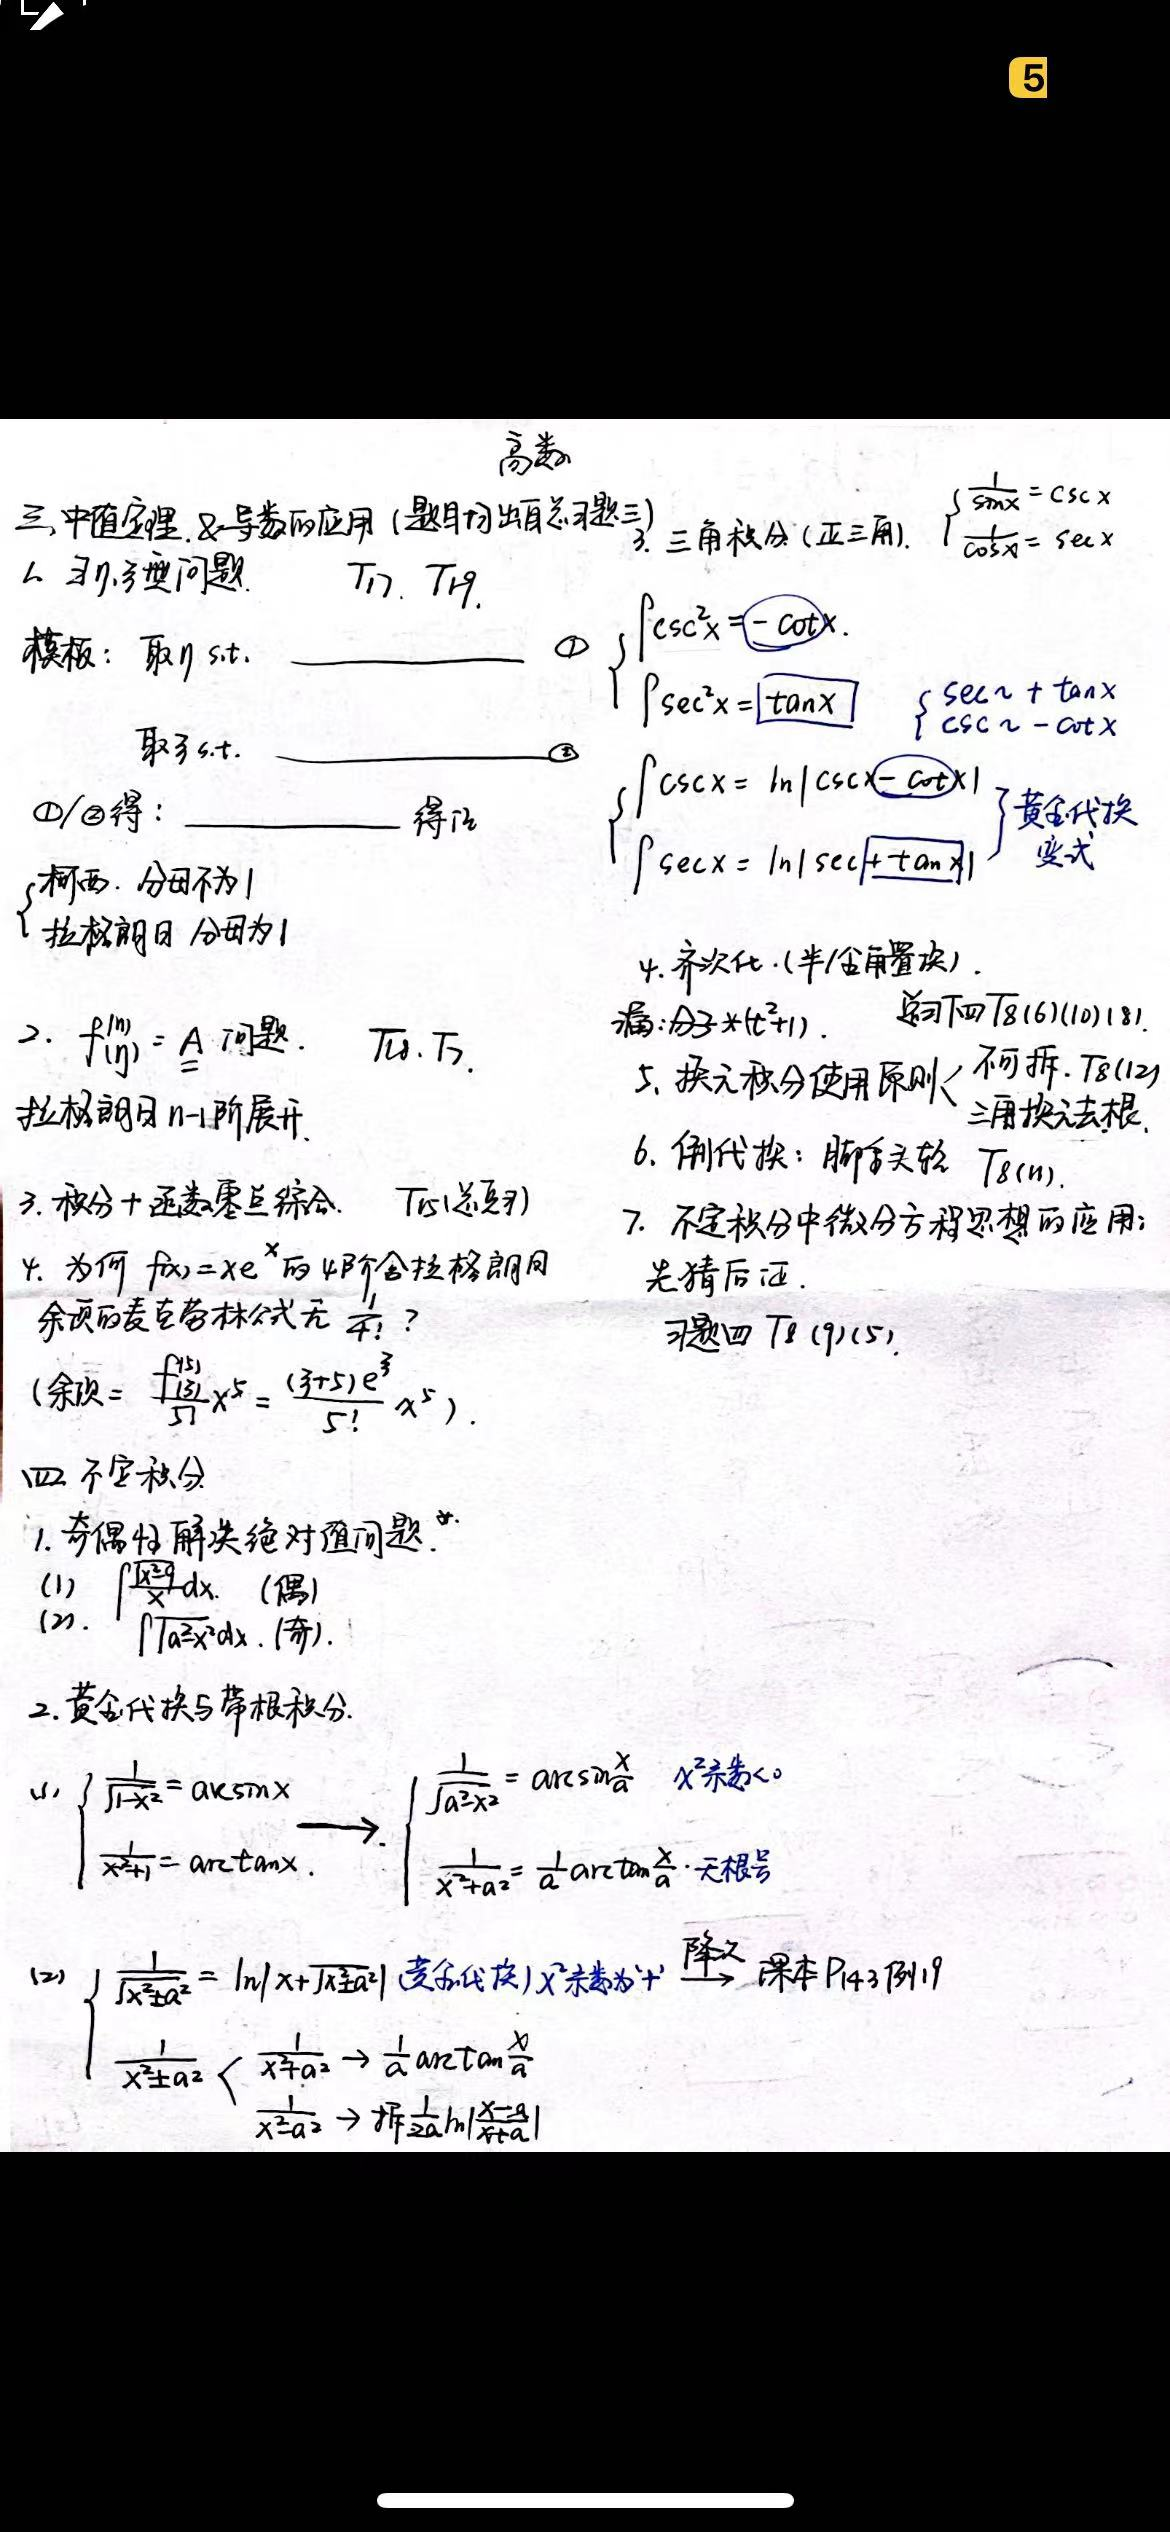 5
高数
三、中值定理 & 导数的应用 (题目均出自总习题三)
1. 习η,ξ型问题. T17. T19.
模板: 取η s.t. ________ ①
取ξ s.t. ________ ②
①/②得: ________ 得证
{ 柯西. 分母不为1
拉格朗日 分母为1
2. f⁽ⁿ⁾(η) = A 问题. T18. T7.
拉格朗日 n-1阶展开.
3. 积分+函数零点综合. T15(总复习)
4. 为何 f(x)=xeˣ的4阶含拉格朗日
余项的麦克劳林公式无 1/4! ?
(余项 = f⁽⁵⁾(ξ)/5! x⁵ = (ξ+5)e^ξ/5! x⁵).
四 不定积分
1. 奇偶性解决绝对值问题.
(1) ∫√(x²-9)/x dx. (偶)
(2). ∫√(a²-x²)dx. (奇).
2. 黄金代换与带根积分.
(1) { 1/√(1-x²) = arcsinx → { 1/√(a²-x²) = arcsin x/a x²系数<0
1/(x²+1) = arctanx. 1/(x²+a²) = 1/a arctan x/a. 无根号
(2) { 1/√(x²±a²) = ln|x+√(x²±a²)| (黄金代换) x²系数为'+' 降次→ 课本P143例19
1/(x²±a²) < 1/(x²+a²) → 1/a arctan x/a
1/(x²-a²) → 拆 1/2a ln|(x-a)/(x+a)|
3. 三角积分(正三角). { 1/sinx = cscx
1/cosx = secx
{ ∫csc²x = -cotx.
∫sec²x = tanx
{ sec~ + tanx
csc~ - cotx
{ ∫cscx = ln|cscx - cotx|
∫secx = ln|sec + tanx|
} 黄金代换
变式
4. 齐次化.(半/全角置换).
漏:分子*(t²+1). 总习四T8(6)(10)(8).
5. 换元积分使用原则< 不可拆. T8(12)
三角换元去根.
6. 倒代换: 脚重头轻 T8(11).
7. 不定积分中微分方程思想的应用:
先猜后证.
习题四 T8(9)(5).